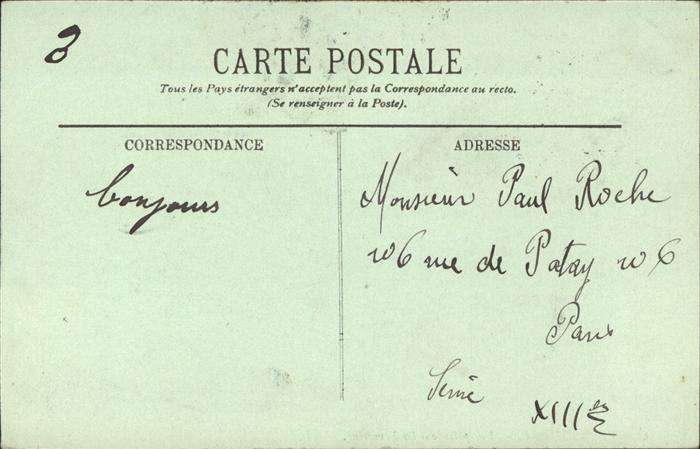 3
CARTE POSTALE
Tous les Pays étrangers n'acceptent pas la Correspondance au recto.
(Se renseigner à la Poste).
CORRESPONDANCE
ADRESSE
bonjours
Monsieur Paul Roche
106 rue de Patay 106
Paris
Seine
XIIIe